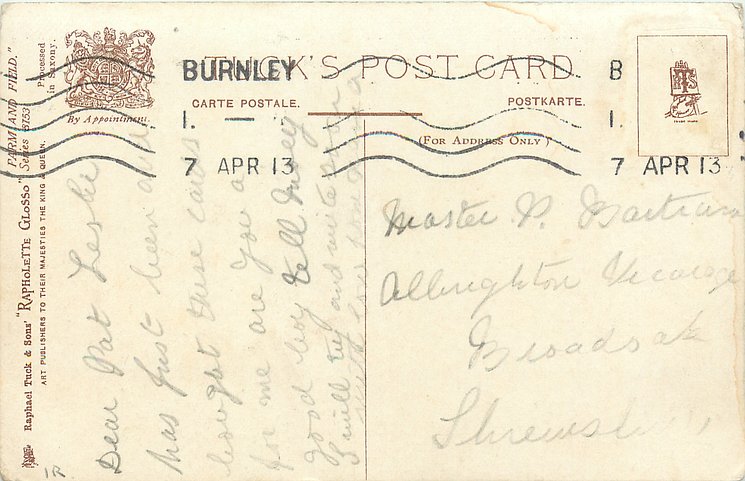 TUCK'S POST CARD.
CARTE POSTALE.
POSTKARTE.
(FOR ADDRESS ONLY)
By Appointment.
BURNLEY
1. —
7 APR 13
B
1.
7 APR 13
TRADE MARK
Raphael Tuck & Sons' "RAPHOLETTE GLOSSO" "FARM AND FIELD." Series 8753
Processed in Saxony.
ART PUBLISHERS TO THEIR MAJESTIES THE KING & QUEEN.
Dear Pat Leslie
has just been and
bought these cards
for me are you a
good boy tell
I will try and write
Master P. Bartram
Albrighton Vicarage
Broadoak